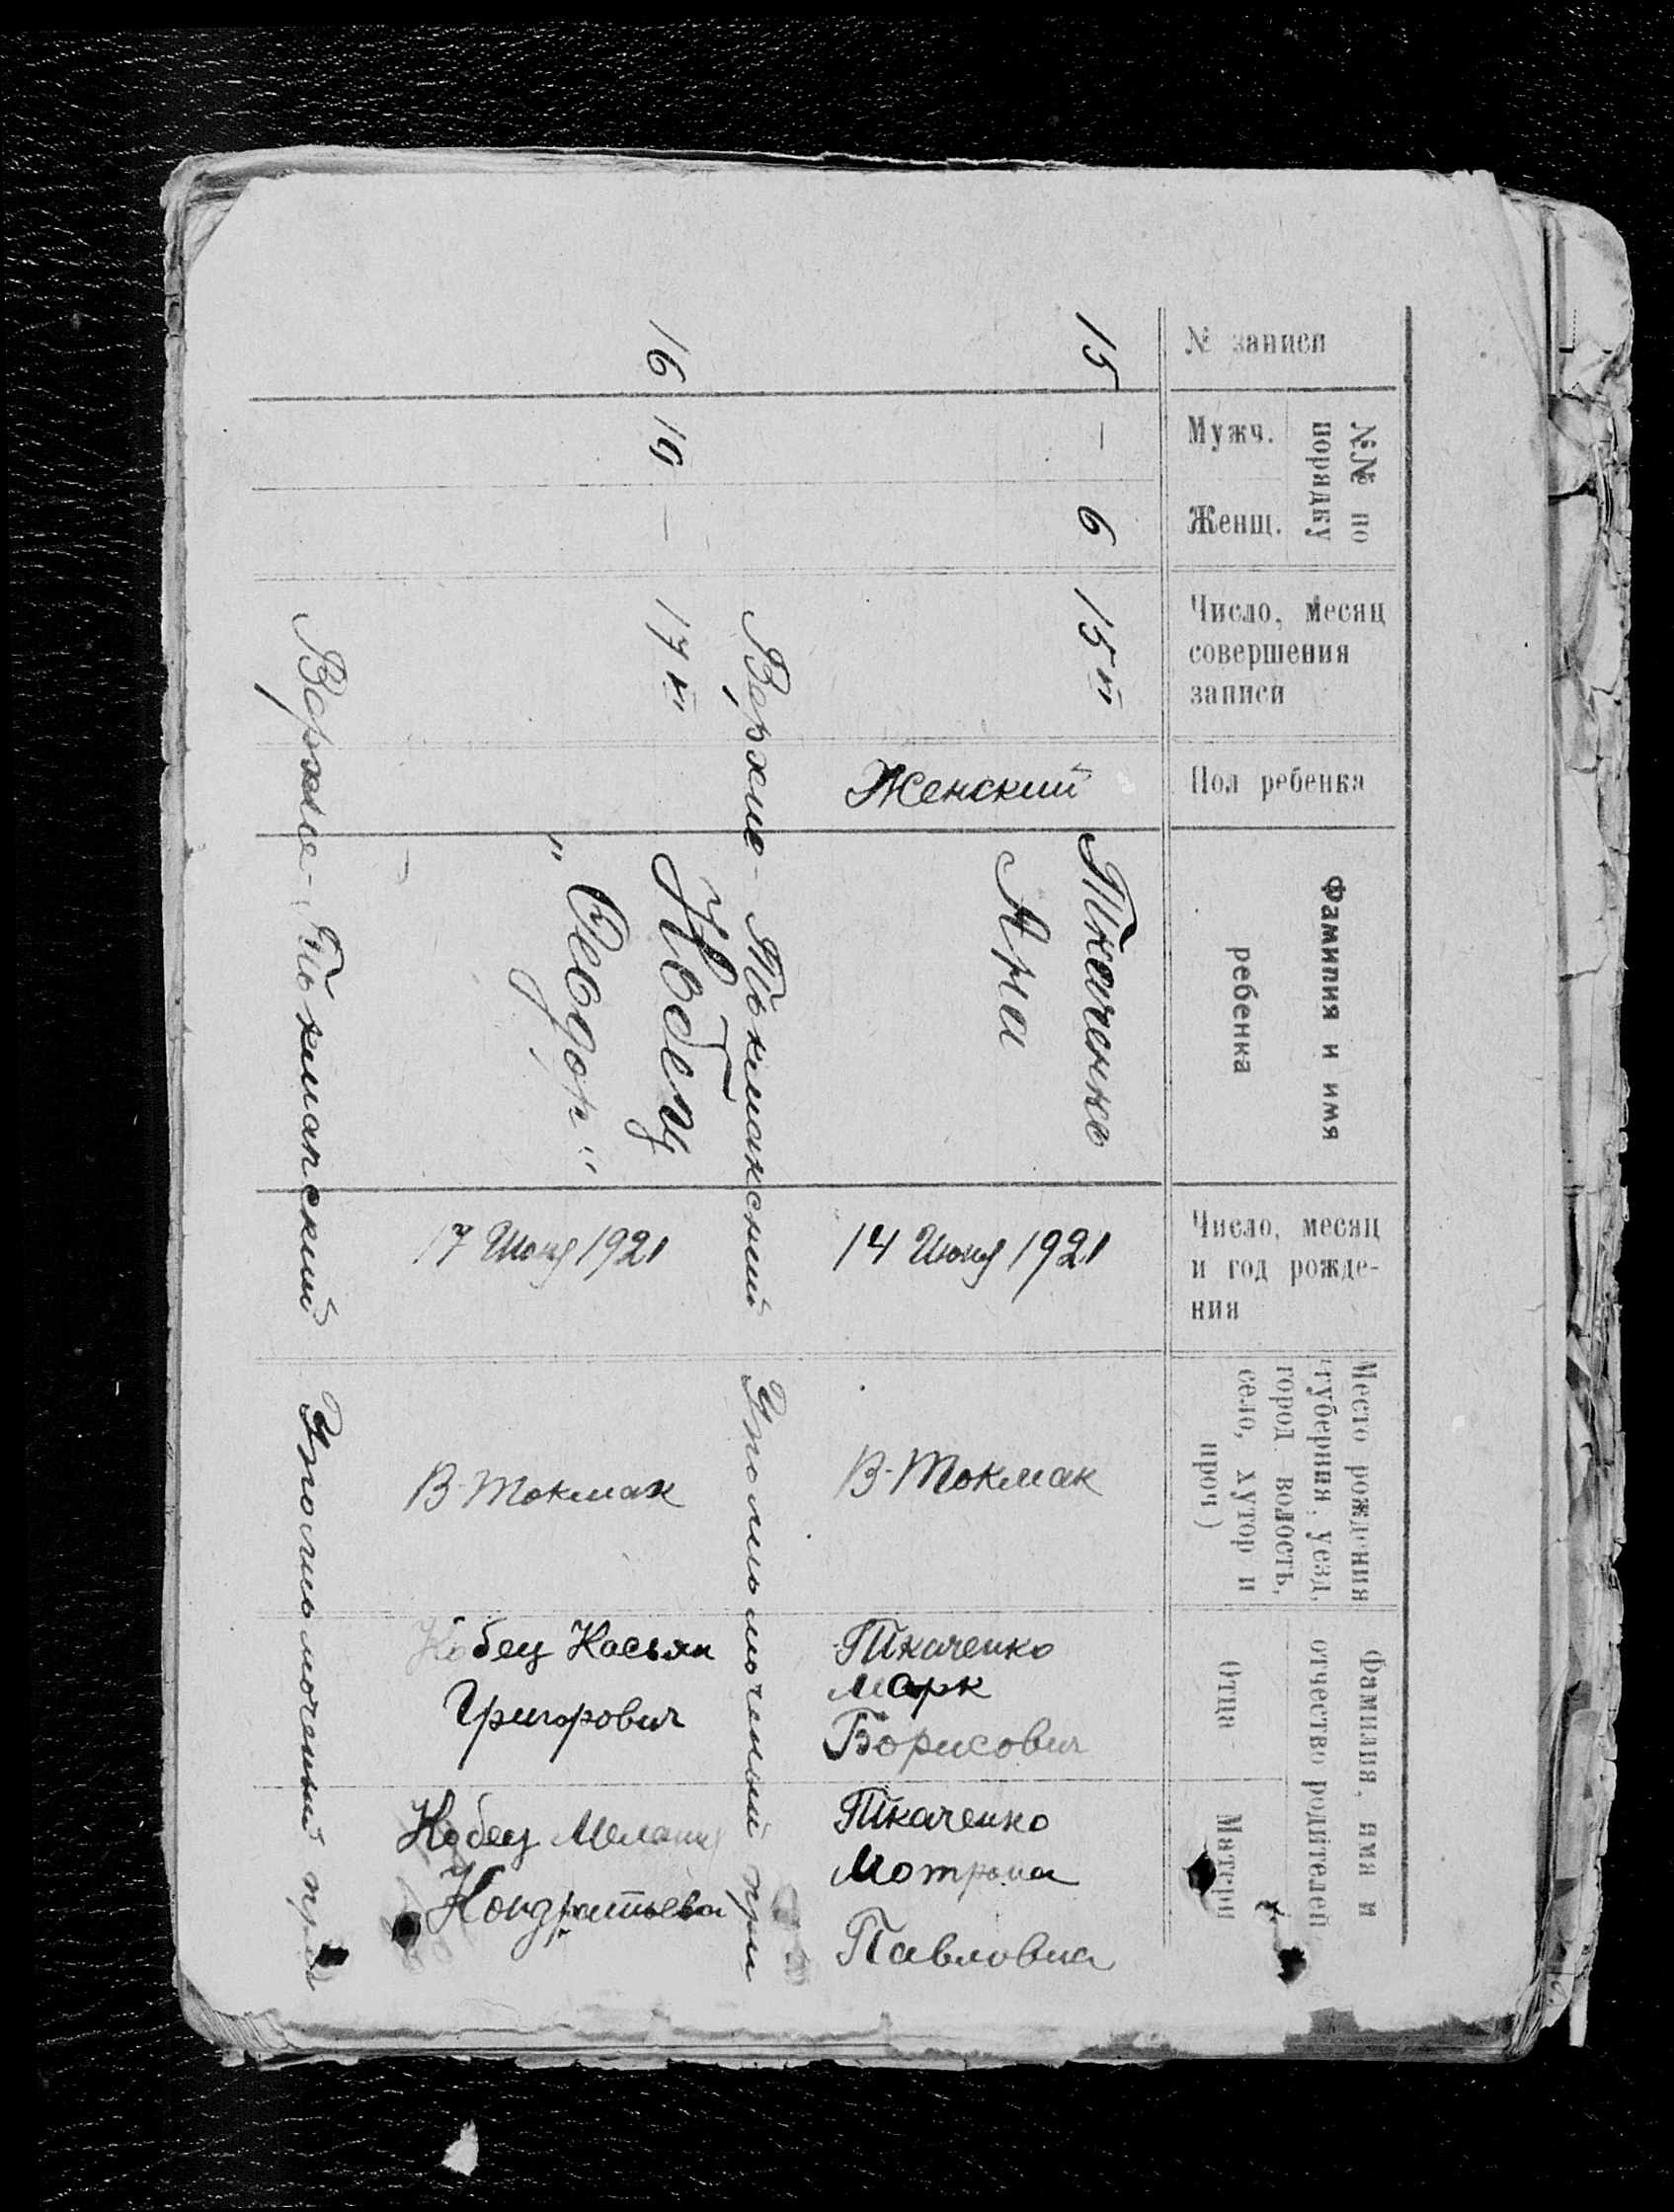 № записи
№№ по
порядку
Мужч.
Женщ.
Число, месяц
совершения
записи
Пол ребенка
Фамилия и имя
ребенка
Число, месяц
и год рожде-
ния
Место рождения
(губерния, уезд,
город волость,
село, хутор и
проч )
Фамилия, имя и
отчество родителей
Отца
Матери
15
—
6
15 VI
Женский
Ткаченко
Яна
14 Июня 1921
В-Токмак
Ткаченко
Марк
Борисович
Ткаченко
Мотрона
Павловна
Верхне-Токмакский Уполномоченый при
16
10
—
17 VI
Кобец
"Феодор"
17 Июня 1921
В-Токмак
Кобец Касьян
Григорович
Кобец Мелания
Кондратьева
Верхне-Токмакский Уполномоченый при